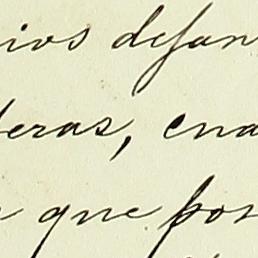 ios dejan
deras, cua
que por